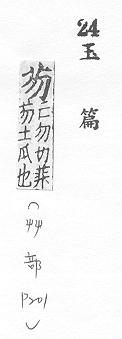 24
玉篇
芴
亡勿切菜
芴土瓜也
(艸部 P201)